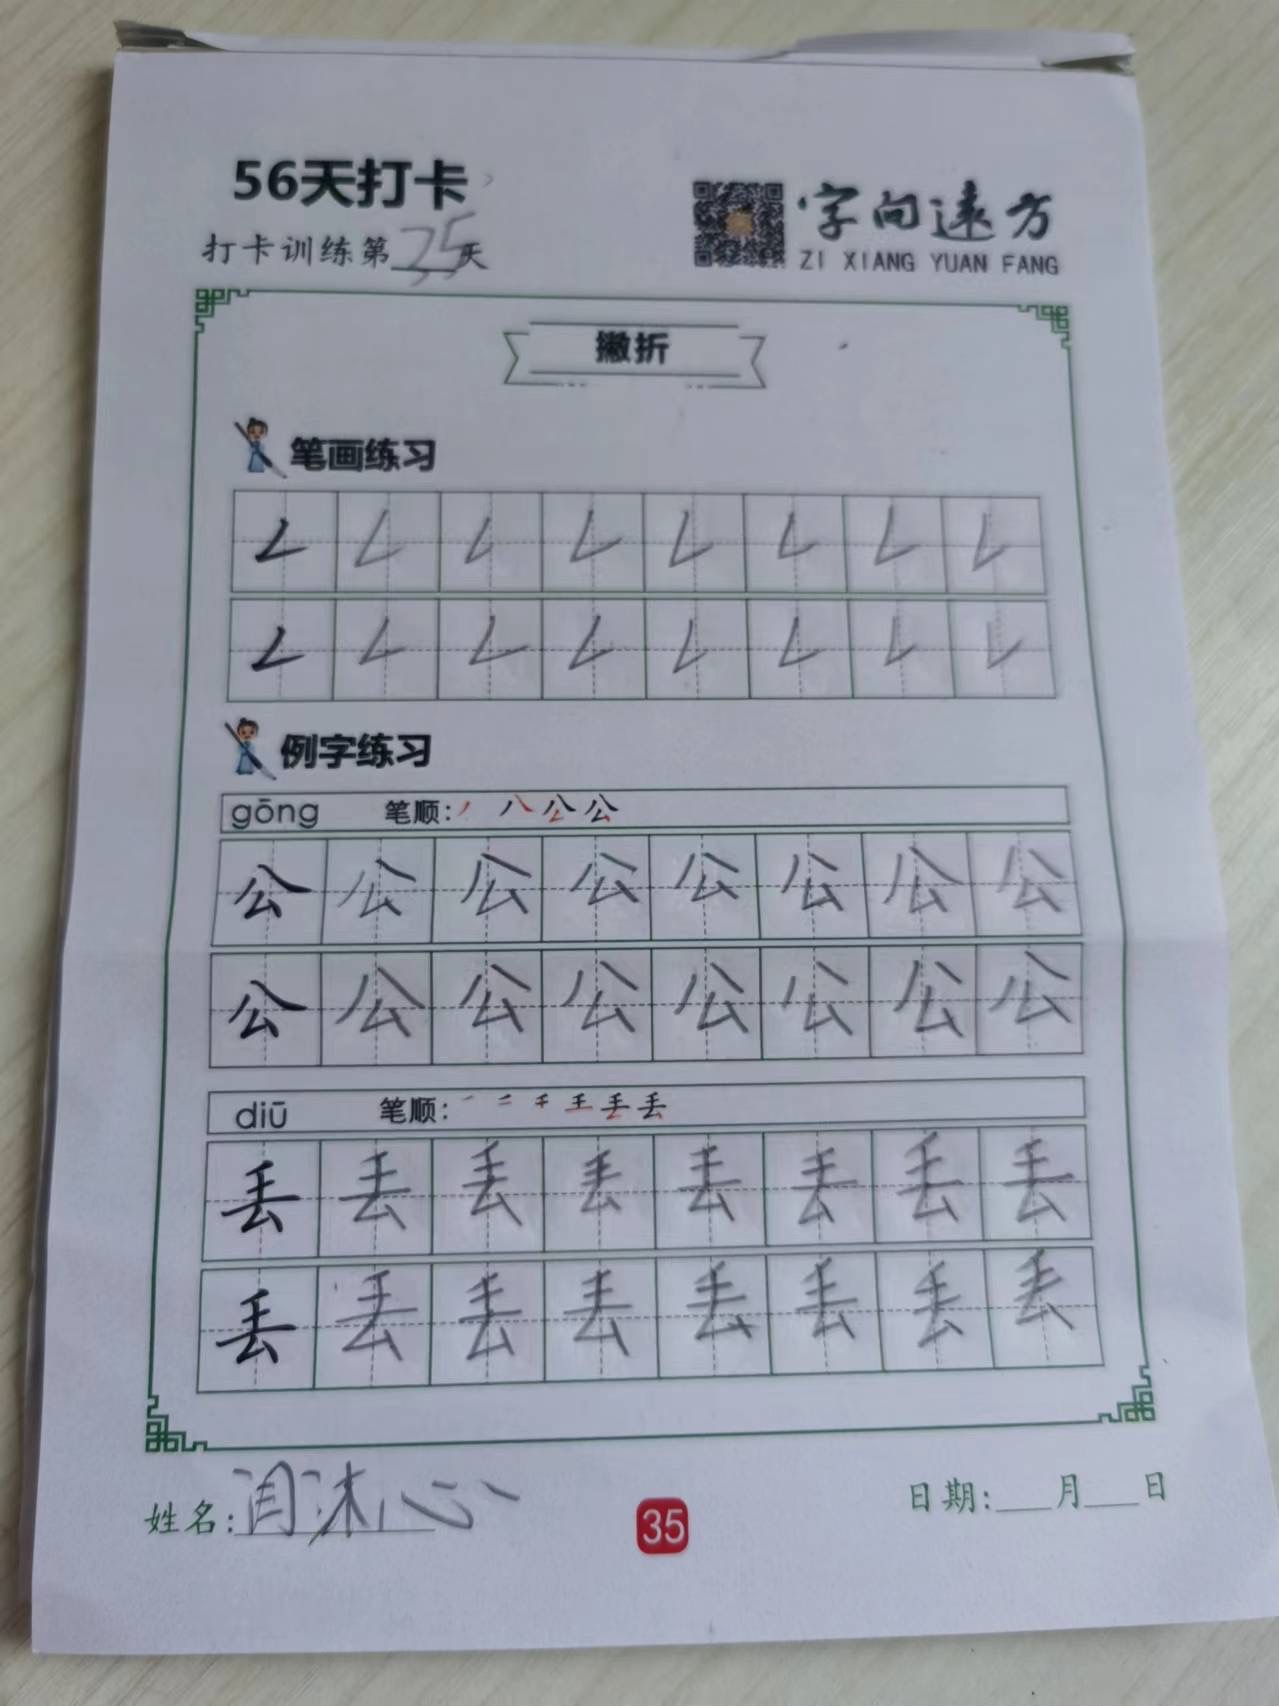 56天打卡
打卡训练第35天
字向远方
ZI XIANG YUAN FANG
撇折
笔画练习
例字练习
gōng 笔顺: 丿 八 公 公
公 公 公 公 公 公 公 公
公 公 公 公 公 公 公 公
diū 笔顺: 一 二 千 王 丢 丢
丢 丢 丢 丢 丢 丢 丢 丢
丢 丢 丢 丢 丢 丢 丢 丢
姓名:闫沫心
35
日期:___月___日